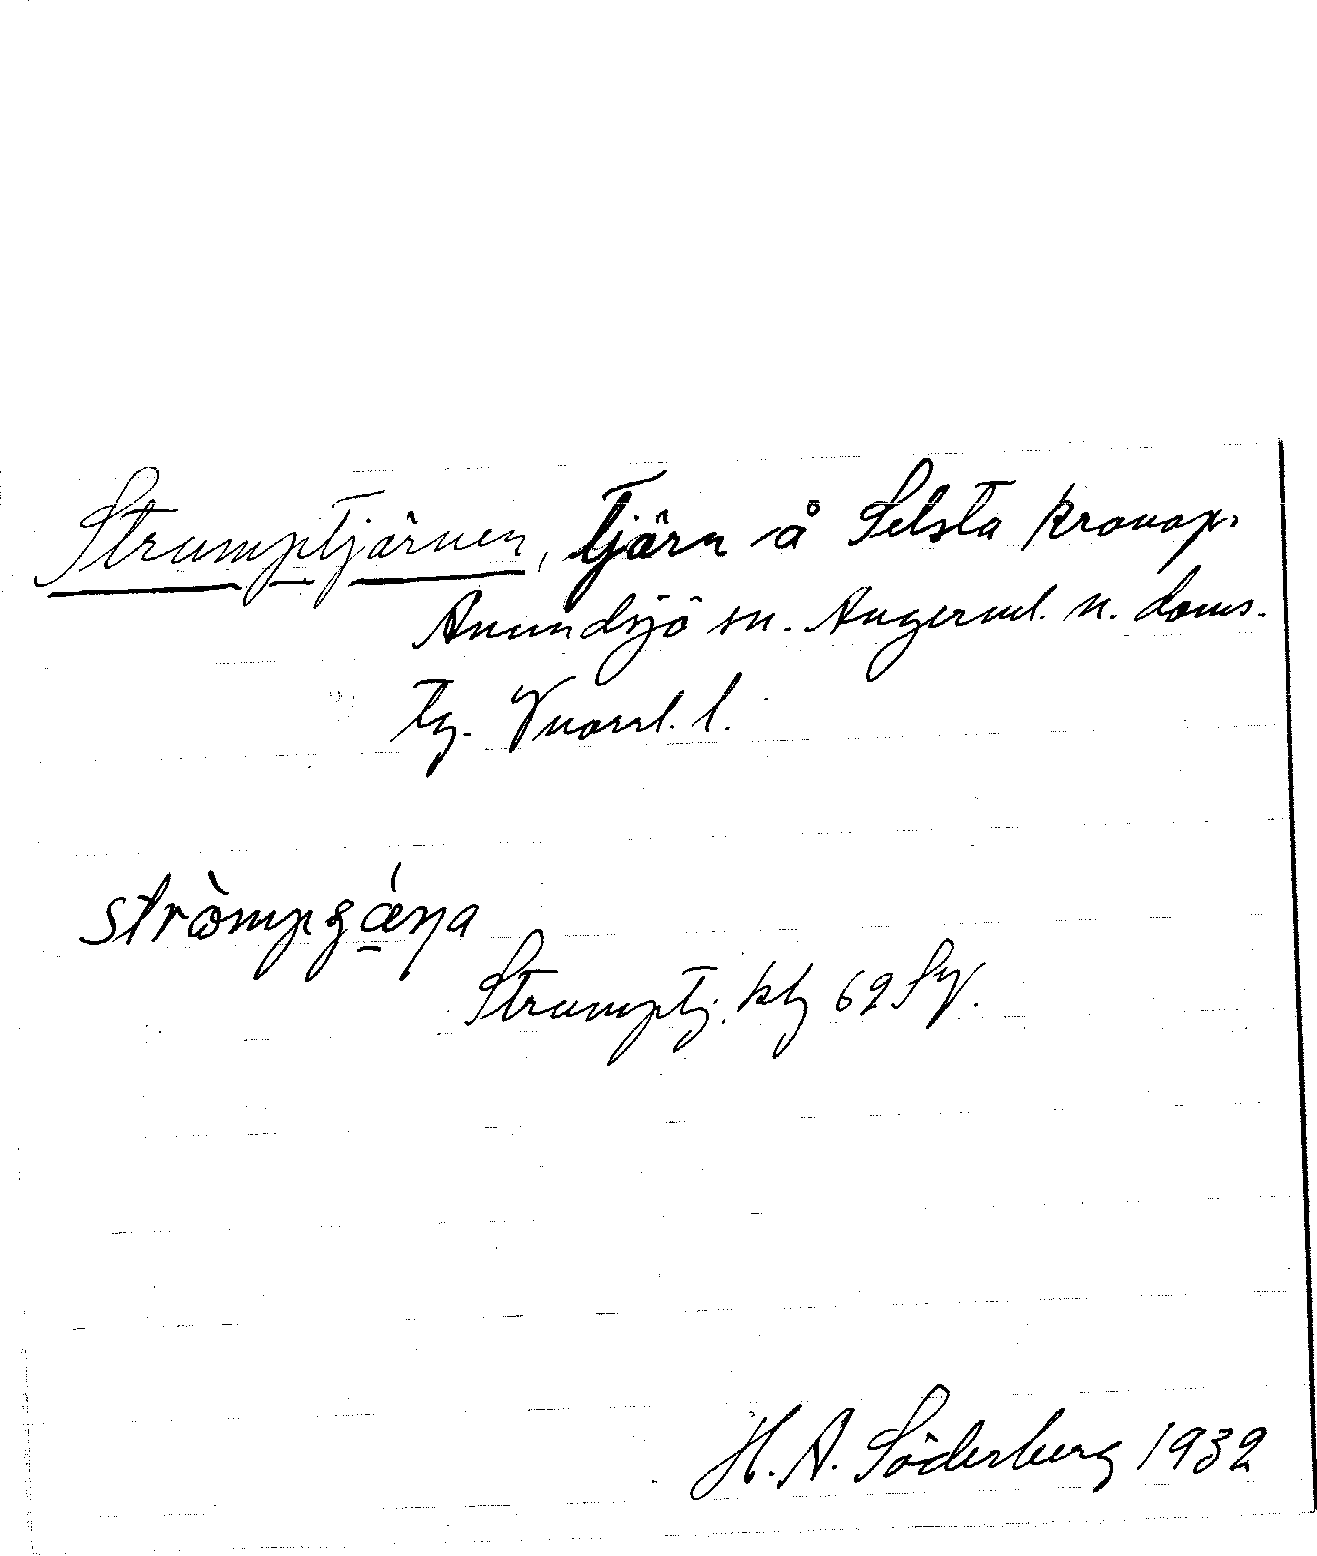 Strumptjärnen, tjärn å Selsta kronop.
Anundsjö sn. Ångerml. n. doms.
tg. Vnorrl. l.
stròmpgæ̀ɳa
Strumptj. ktg 62 Sy.
H. A. Söderberg 1932